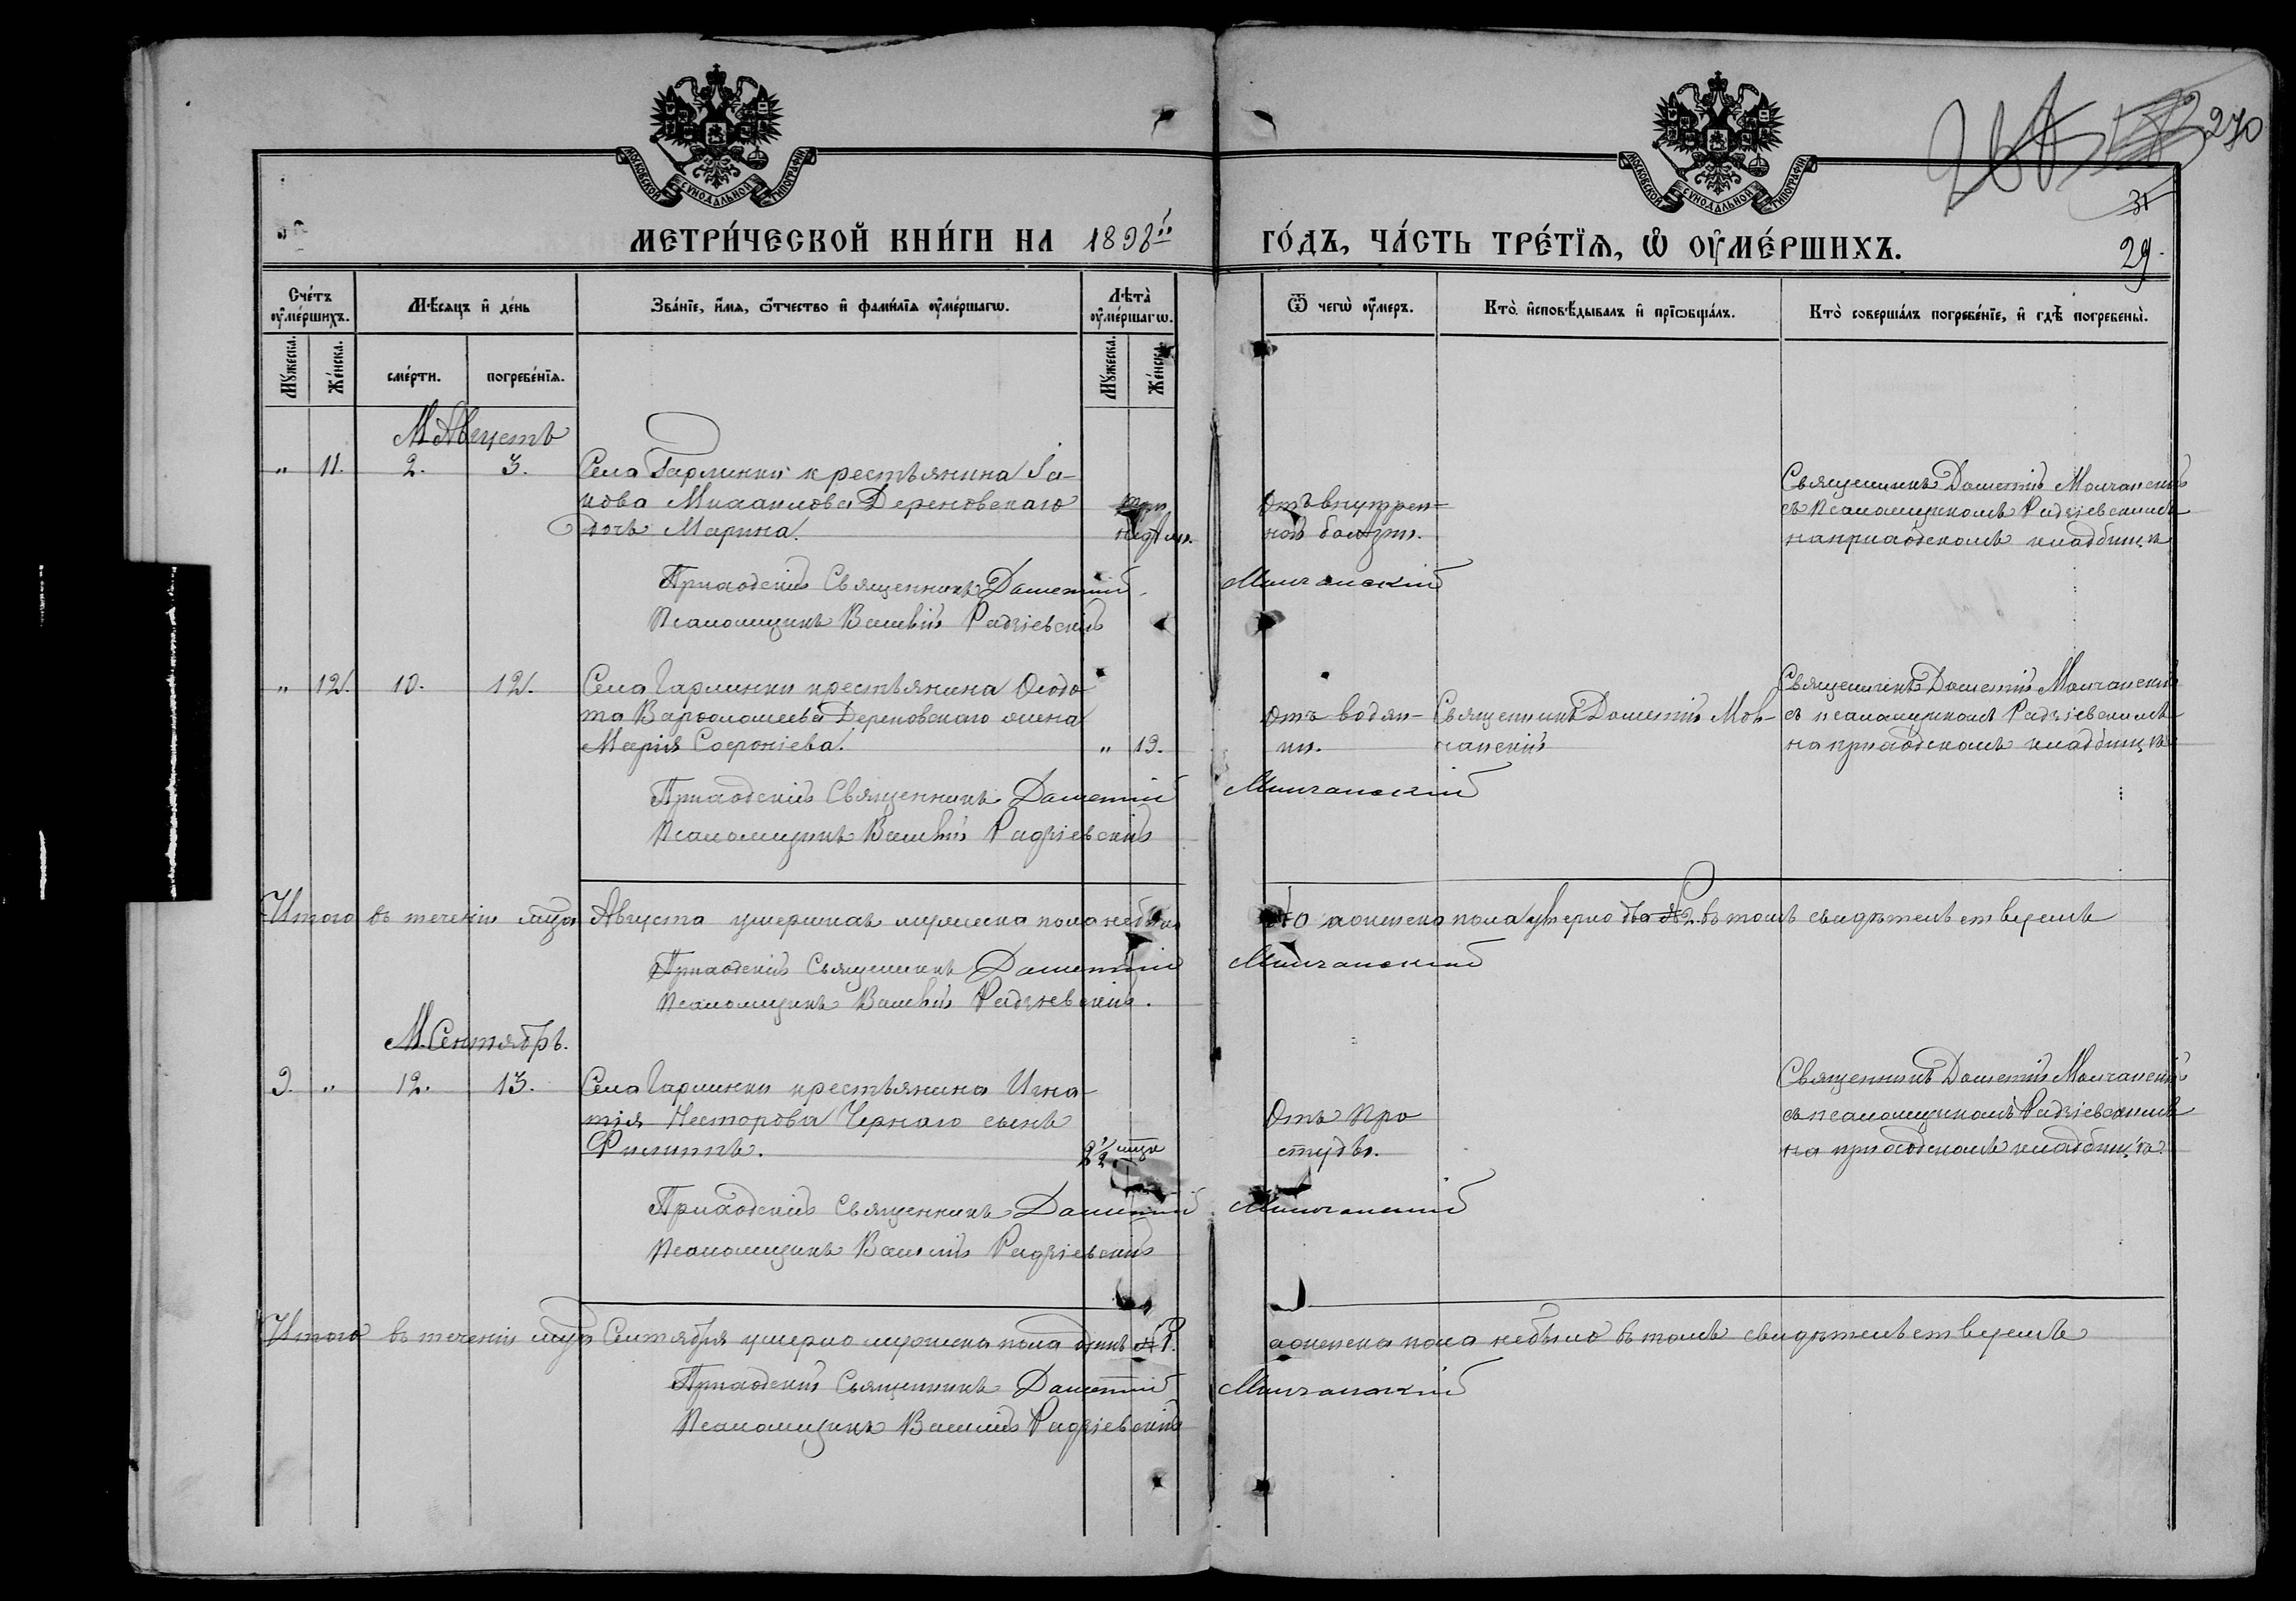 270
31
29.
МОСКОВСКОЙ СѴНОДАЛЬНОЙ ТИПОГРАФІИ
МОСКОВСКОЙ СѴНОДАЛЬНОЙ ТИПОГРАФІИ
МЕТРИ́ЧЕСКОЙ КНИ́ГИ НА 1898й ГО́ДЪ, ЧА́СТЬ ТРЕ́ТІѦ, Ѡ ОУ҆МЕ́РШИХЪ.
Сче́тъ оу҆ме́ршихъ. Мѣ́сяцъ и҆ де́нь Зва́нїе, и҆́мя, ѻ҆́тчество и҆ фами́лїя оу҆ме́ршагѡ. Лѣта̀ оу҆ме́ршагѡ. Ѿ чегѡ̀ оу҆́меръ. Кто̀ и҆сповѣ́дывалъ и҆ прїѡбща́лъ. Кто̀ соверша́лъ погребе́нїе, и҆ гдѣ̀ погребены̀.
Мꙋ́жеска. Же́нска. сме́рти. погребе́нїя. Мꙋ́жеска. Же́нска.
М. Августъ
" 11. 2. 3. Села Гармики крестьянина Іа-
кова Михаилова Дереновскаго
дочь Марина.
три
недѣли.
Отъ внутрен-
ной болѣзни.
Священникъ Дометій Молчанскій
съ псаломщикомъ Радзіевскимъ
на приходскомъ кладбищѣ
Приходскій Священникъ Дометій Молчанскій
Псаломщикъ Василій Радзіевскій
" 12. 10. 12. Села Гармики крестьянина Ѳеодо-
та Варѳоломеева Дереновскаго жена
Марія Софроніева. " 19.
Отъ водян-
ки.
Священникъ Дометій Мол-
чанскій
Священникъ Дометій Молчанскій
съ псаломщикомъ Радзіевскимъ
на приходскомъ кладбищѣ
Приходскій Священникъ Дометій Молчанскій
Псаломщикъ Василій Радзіевскій
Итого въ теченіи мѣсца Августа умершихъ мужеска пола небыло а женска пола умерло два № 2. въ томъ свидѣтельствуемъ
Приходскій Священникъ Дометій Молчанскій
Псаломщикъ Василій Радзіевскій.
М. Сентябрь.
9. " 12. 13. Села Гармики крестьянина Игна-
тія Несторова Чернаго сынъ
Филиппъ. 2 1/2 мѣсца
Отъ про
студы.
Священникъ Дометій Молчанскій
съ псаломщикомъ Радзіевскимъ
на приходскомъ кладбищѣ
Приходскій Священникъ Дометій Молчанскій
Псаломщикъ Василій Радзіевскій
Итого въ теченіи мѣсца Сентября умерло мужеска пола одинъ № 1. а женска пола небыло въ томъ свидѣтельствуемъ
Приходскій Священникъ Дометій Молчанскій
Псаломщикъ Василій Радзіевскій